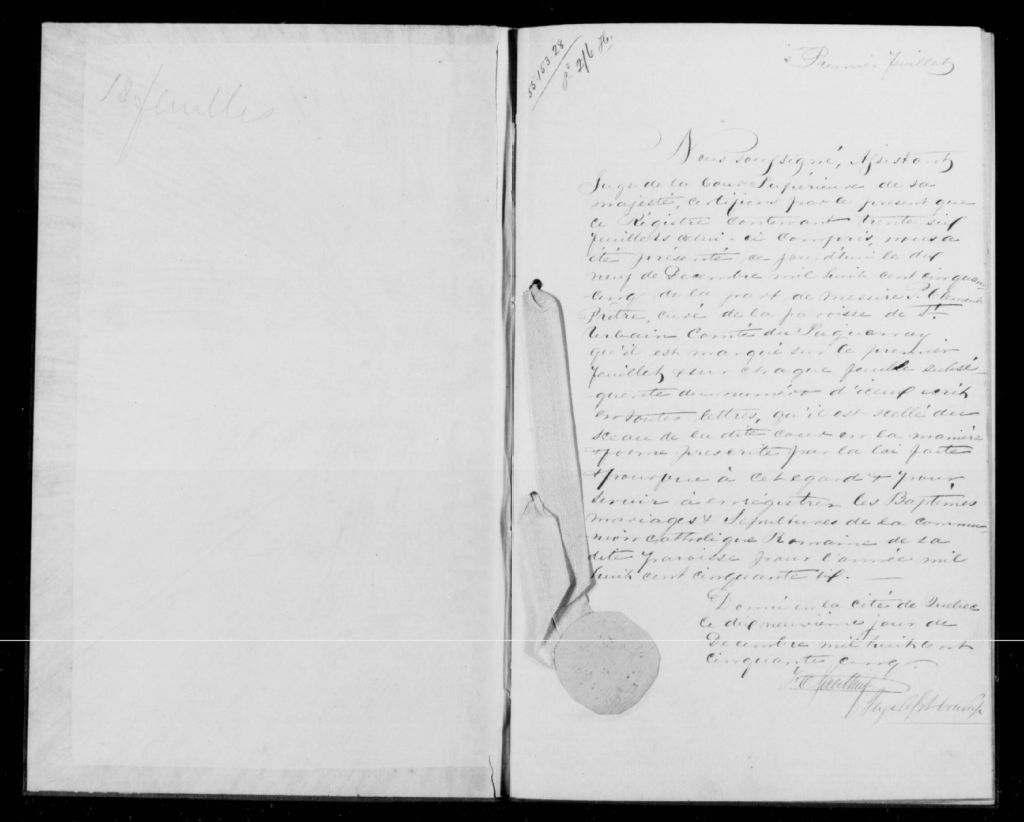 18 feuilles
55-153-28
2/6
Premier feuillet
Nous soussigné, Assistant
Juge de la Cour Supérieure de sa
majesté, certifions par le present que
ce Régistre contenant trente six
feuillets celui-ci compris, nous a
été présenté, ce jourd'hui le dix
neuf de Decembre mil huit cent cinquan
cinq de la part de messire P. Clement
Prêtre, curé de la paroisse de St
Urbain Comté du Saguenay
qu'il est marqué sur le premier
feuillet & sur chaque feuille subsé-
quente du numéro d'iceux ecrit
en toutes lettres, qu'il est scellé du
sceau de la dite cour en la manière
& forme prescrite par la loi faite
& pourvue à cet egard & pour
servir à enrégistrer les Baptêmes
mariages & Sépultures de la commu-
nion catholique Romaine de la
dite Paroisse pour l'année mil
huit cent cinquante six. —
Donné en la cité de Quebec
le dix neuvième jour de
Decembre mil huit cent
cinquante cinq.
Juge